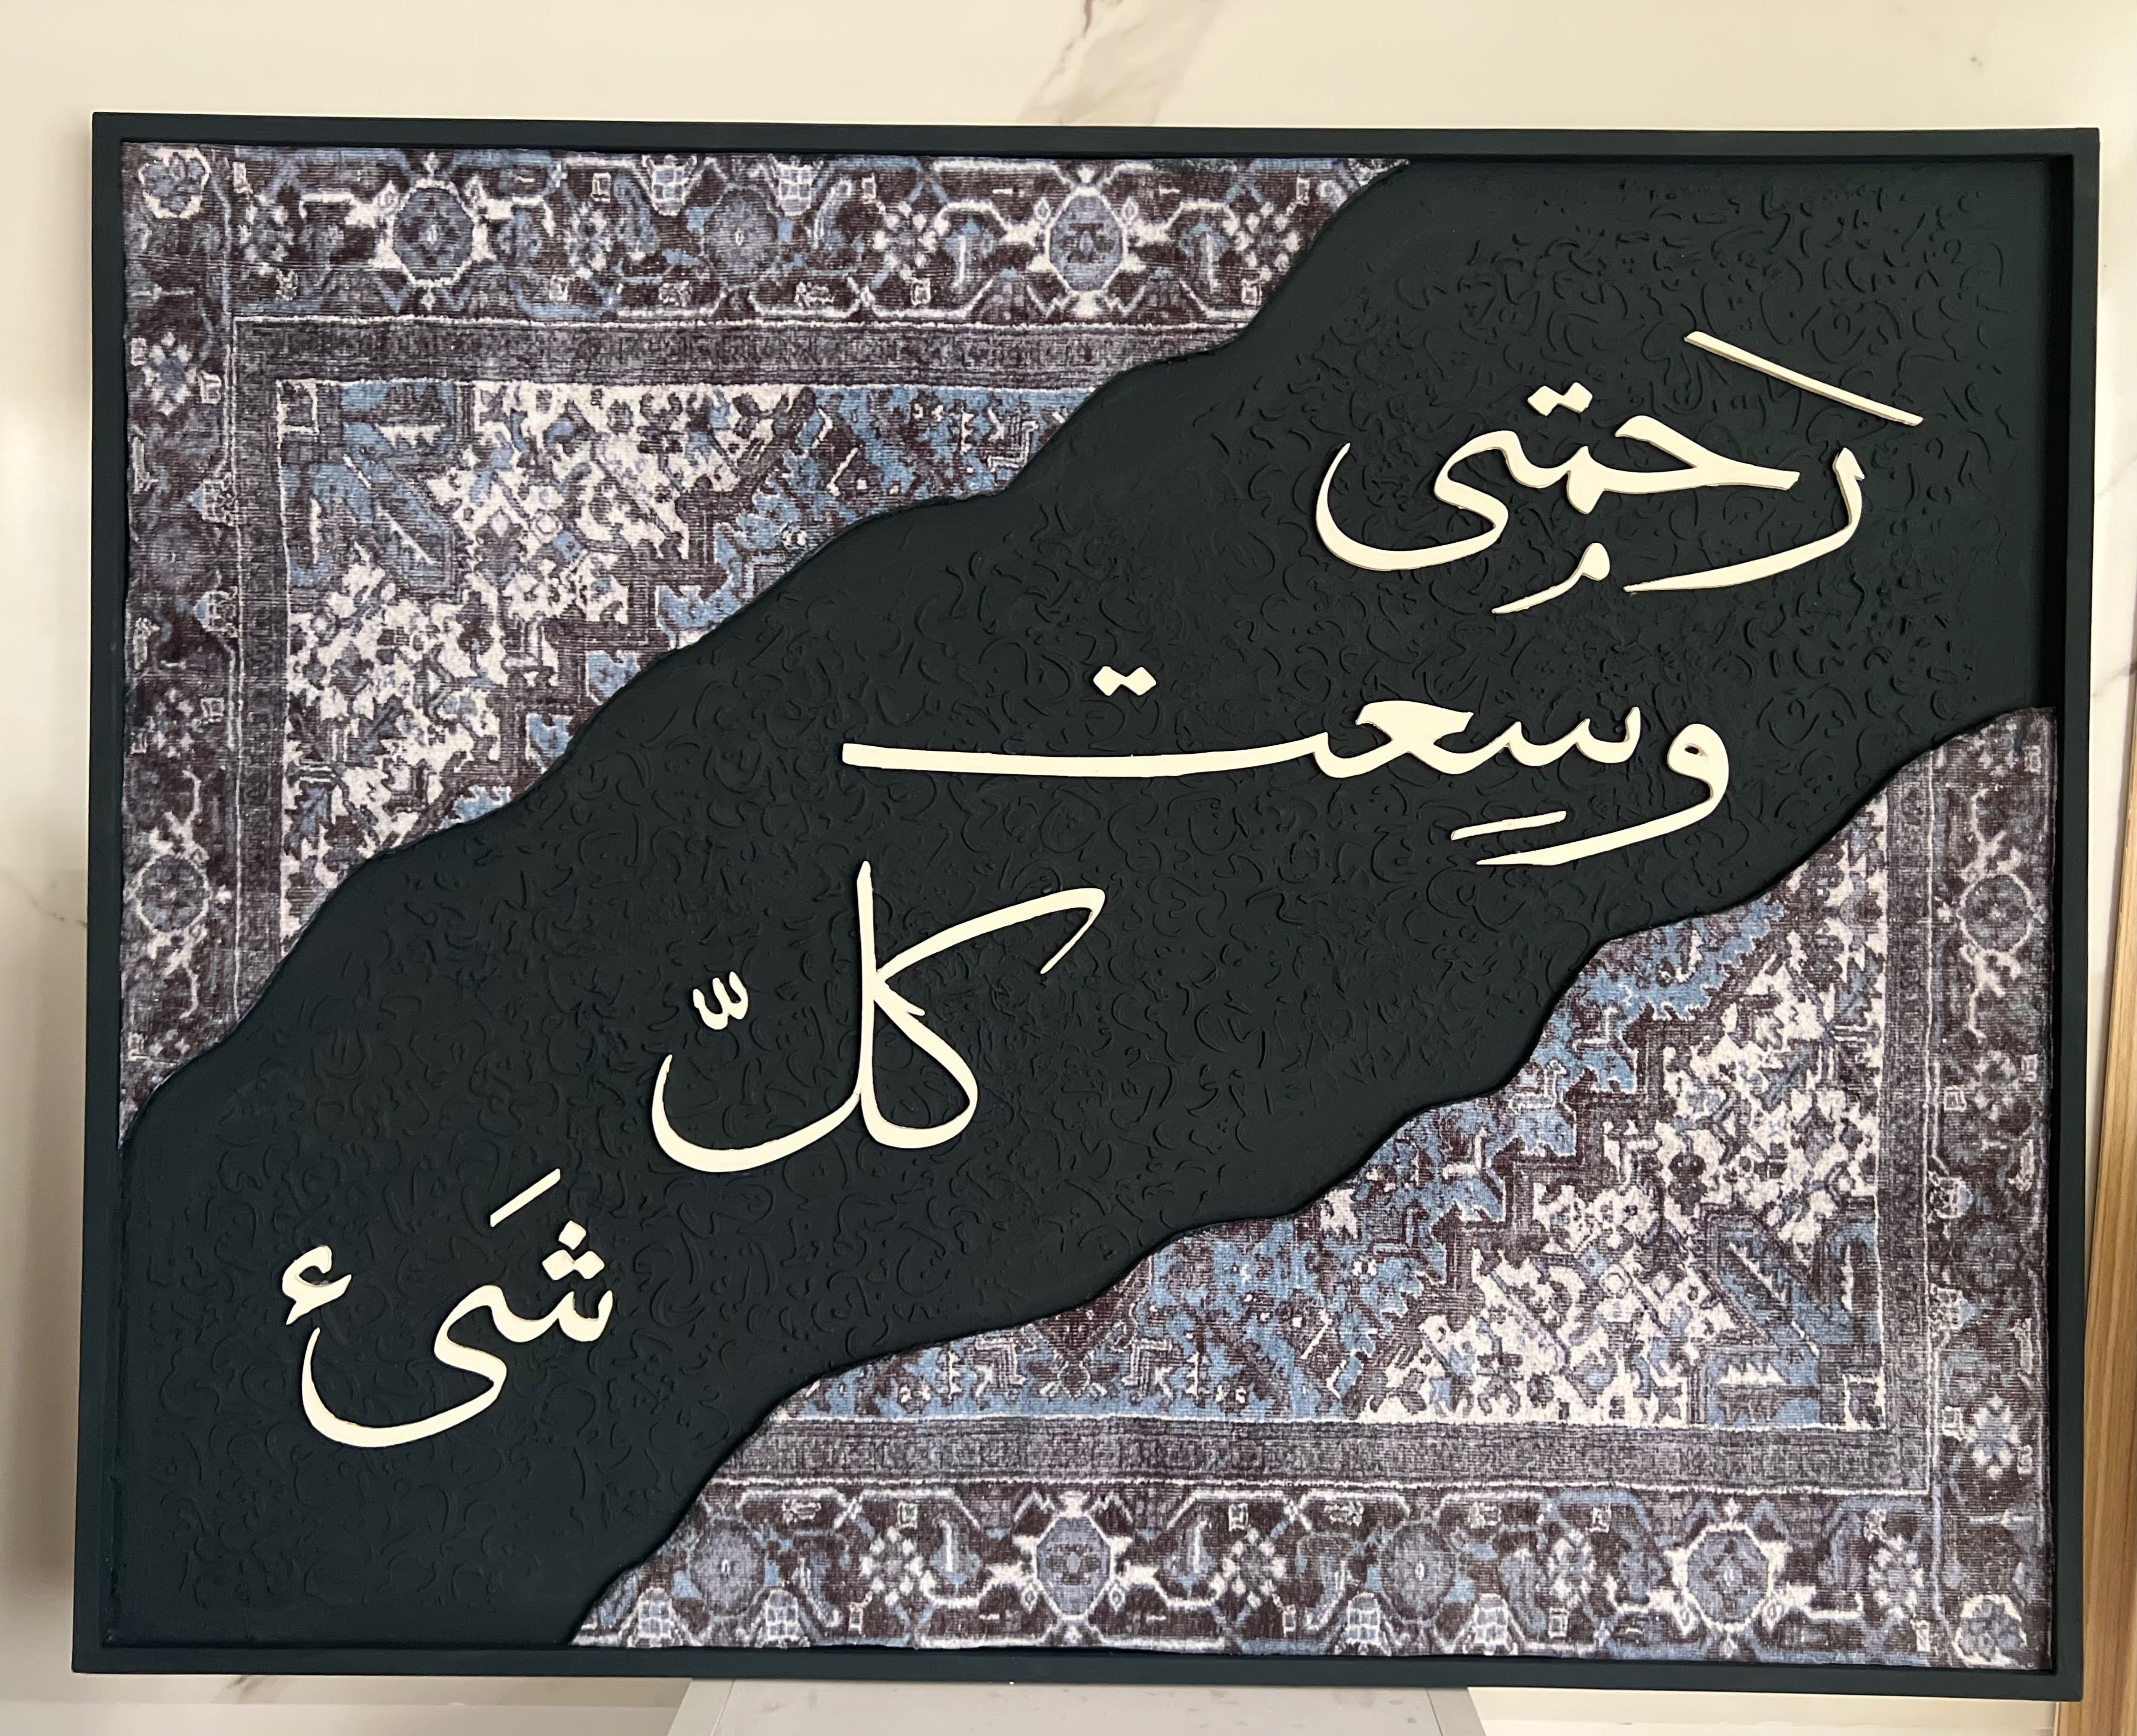 رَحمتی
وسِعت
كلّ
شَیء